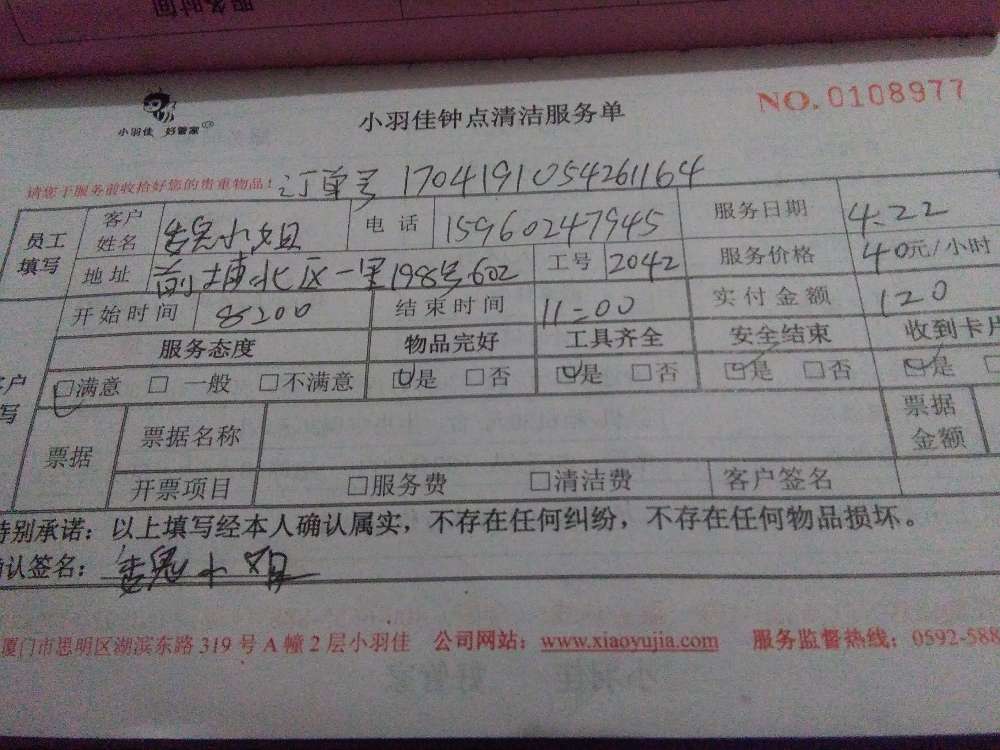 服务时间
小羽佳 好管家
小羽佳钟点清洁服务单
NO. 0108977
请您于服务前收拾好您的贵重物品! 订单号 1704191054261164
员工填写 客户姓名 小姐 电话 15960247945 服务日期 4.22
地址 前埔北区一里198号602 工号 2042 服务价格 40元/小时
开始时间 8:00 结束时间 11:00 实付金额 120
服务态度 物品完好 工具齐全 安全结束 收到卡片
□满意 □ 一般 □不满意 □是 □否 □是 □否 □是 □否 □是
票据 票据名称 票据金额
开票项目 □服务费 □清洁费 客户签名
特别承诺：以上填写经本人确认属实，不存在任何纠纷，不存在任何物品损坏。
确认签名： 小姐
厦门市思明区湖滨东路 319 号 A 幢 2 层小羽佳 公司网站：www.xiaoyujia.com 服务监督热线：0592-588
小羽佳 好管家